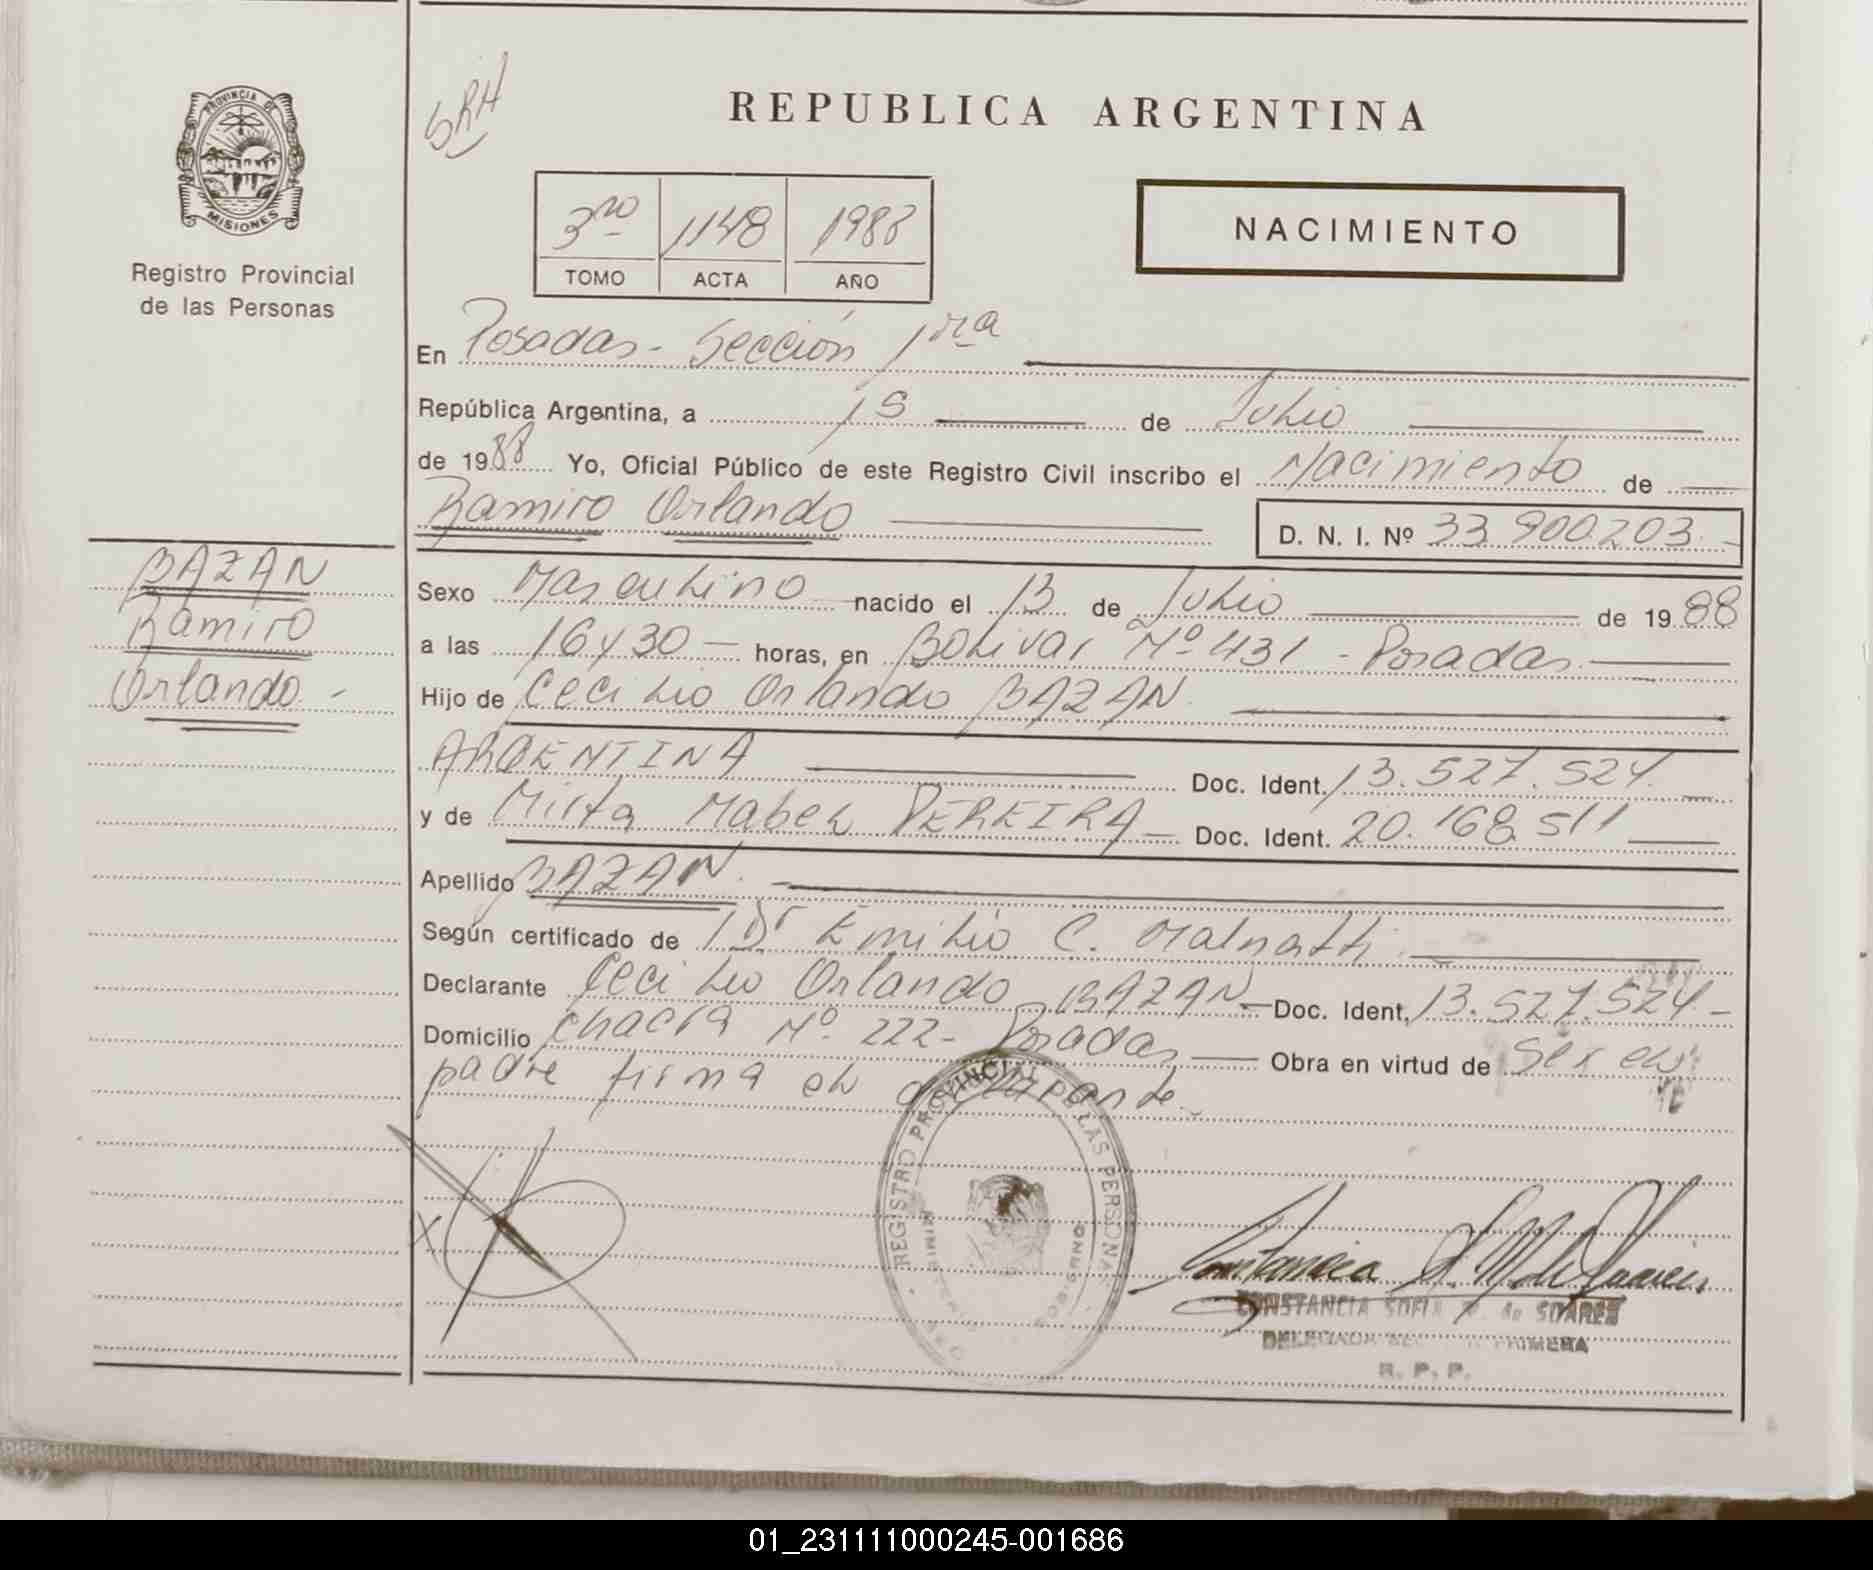 PROVINCIA DE
MISIONES
Registro Provincial
de las Personas
BAZAN
Ramiro
Orlando -
SRH
REPUBLICA ARGENTINA
3ro 1148 1988
TOMO ACTA AÑO
NACIMIENTO
En Posadas - Sección 1ra
República Argentina, a 15 de Julio
de 1988 Yo, Oficial Público de este Registro Civil inscribo el Nacimiento de
Ramiro Orlando D. N. I. Nº 33.900.203 -
Sexo Masculino nacido el 13 de Julio de 1988
a las 16 y 30 - horas, en Bolivar Nº 431 - Posadas
Hijo de Cecilio Orlando BAZAN
ARGENTINA Doc. Ident. 13.527.524
y de Mirta Mabel PEREIRA - Doc. Ident. 20.168.511
Apellido BAZAN.
Según certificado de Dr Emilio C. Malnatti
Declarante Cecilio Orlando BAZAN - Doc. Ident. 13.527.524 -
Domicilio Chacra Nº 222 - Posadas Obra en virtud de ser el
padre firma el declarante.
REGISTRO PROVINCIAL DE LAS PERSONAS
MINISTERIO DE GOBIERNO
X
Constancia S. M. de Suarez
CONSTANCIA SOFIA M. de SUAREZ
DELEGADA PRIMERA
R. P. P.
01_231111000245-001686